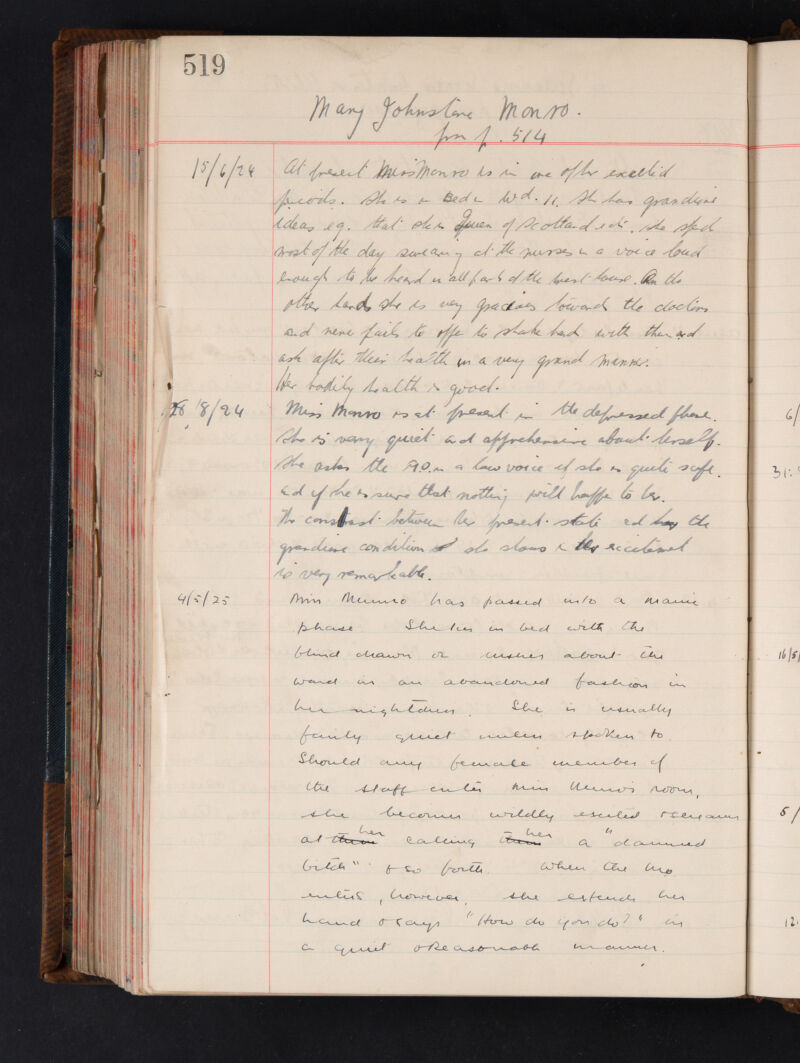 519
Mary Johnstone Monro.
from p. 514
15/6/24 At present Miss Monro is in one of her excited
periods. She is in Bed in Wd. 11. She has grandiose
ideas e.g. that she is Queen of Scotland etc. She spends
most of the day swearing at the nurses in a voice loud
enough to be heard in all parts of the west house. On the
other hand she is very gracious towards the doctors
and never fails to offer to shake hands with them and
ask after their health in a very grand manner.
Her bodily health is good.
18/8/24 Miss Monro is at present in the depressed phase.
She is very quiet and apprehensive about herself.
She asks the M.O. in a low voice if she is quite safe.
and if he is sure that nothing will happen to her.
The contrast between her present state and the
grandiose condition she shows in her excitement
is very remarkable.
4/5/25 Miss Munro has passed into a manic
phase. She lies in bed with the
blind drawn or rushes about the
ward in an abandoned fashion in
her nightdress. She is usually
fairly quiet unless spoken to.
Should any female member of
the staff enter Miss Munro's room,
she becomes wildly excited & screams
at them her calling them her a "damned
bitch" & so forth. When the MO
enters, however, she extends her
hand & says "How do you do?" in
a quiet & reasonable manner.
6/
31:
16/5/
5/
12